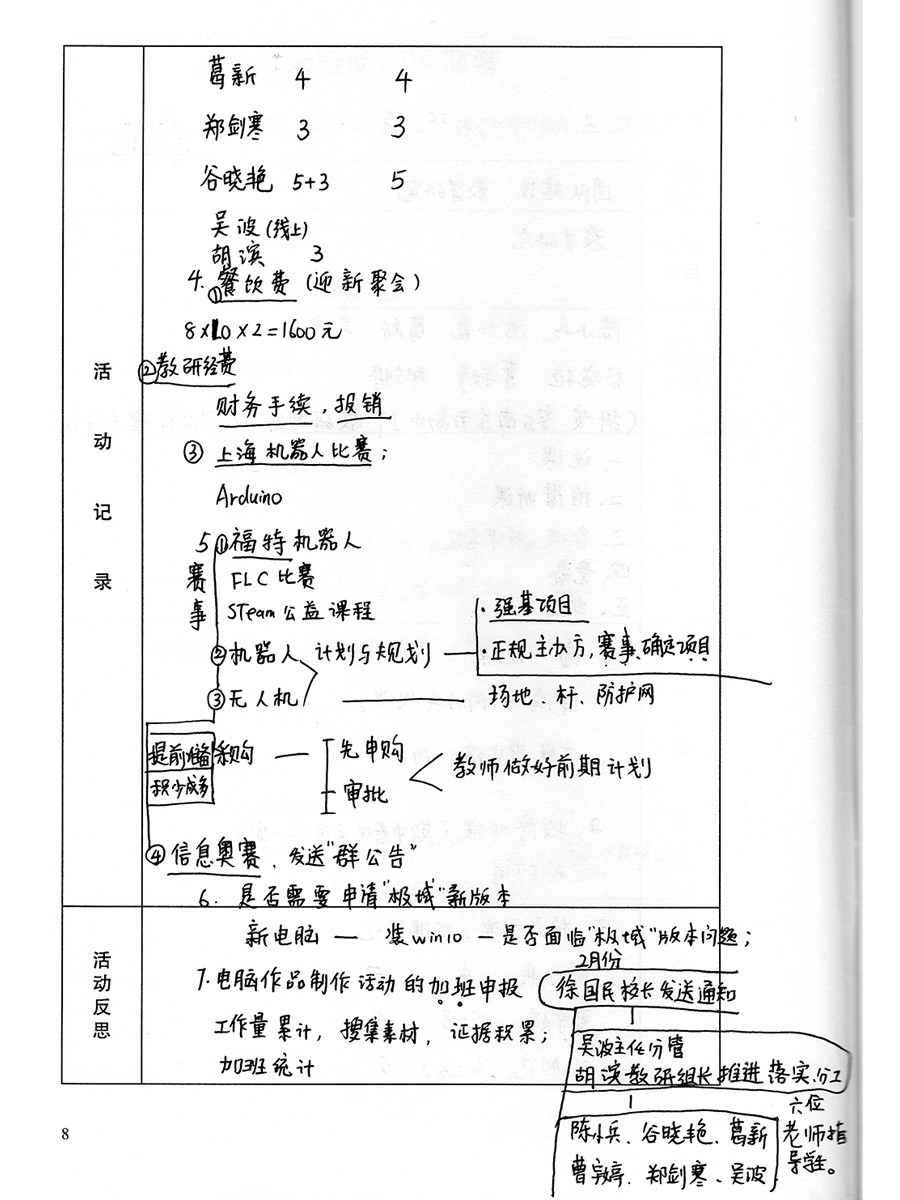 葛新 4 4
郑剑寒 3 3
谷晓艳 5+3 5
吴波(线上)
胡滨 3
4. ①餐饮费 (迎新聚会)
8×10×2=1600元
②教研经费
财务手续,报销
③ 上海机器人比赛;
Arduino
5 赛事 ①福特机器人
FLC比赛
STeam公益课程
②机器人 计划与规划
·强基项目
·正规主办方,赛事、确定项目
③无人机 场地、杆、防护网
提前准备
积少成多
采购 — 先申购
审批
教师做好前期计划
④信息奥赛、发送"群公告"
6. 是否需要申请"极域"新版本
新电脑 — 装win10 — 是否面临"极域"版本问题;
7. 电脑作品制作活动的加班申报
2月份
徐国民校长发送通知
工作量累计,搜集素材,证据积累;
加班统计
吴波主任分管
胡滨教研组长推进落实分工
陈小兵、谷晓艳、葛新
曹宇婷、郑剑寒、吴波
六位
老师指
导学生。
活动记录
活动反思
8